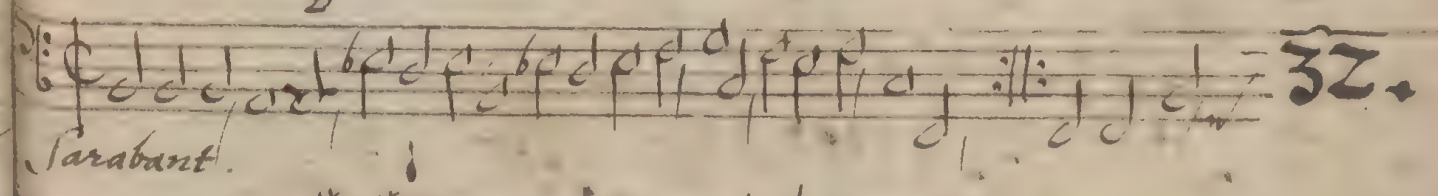 32.
Sarabant.